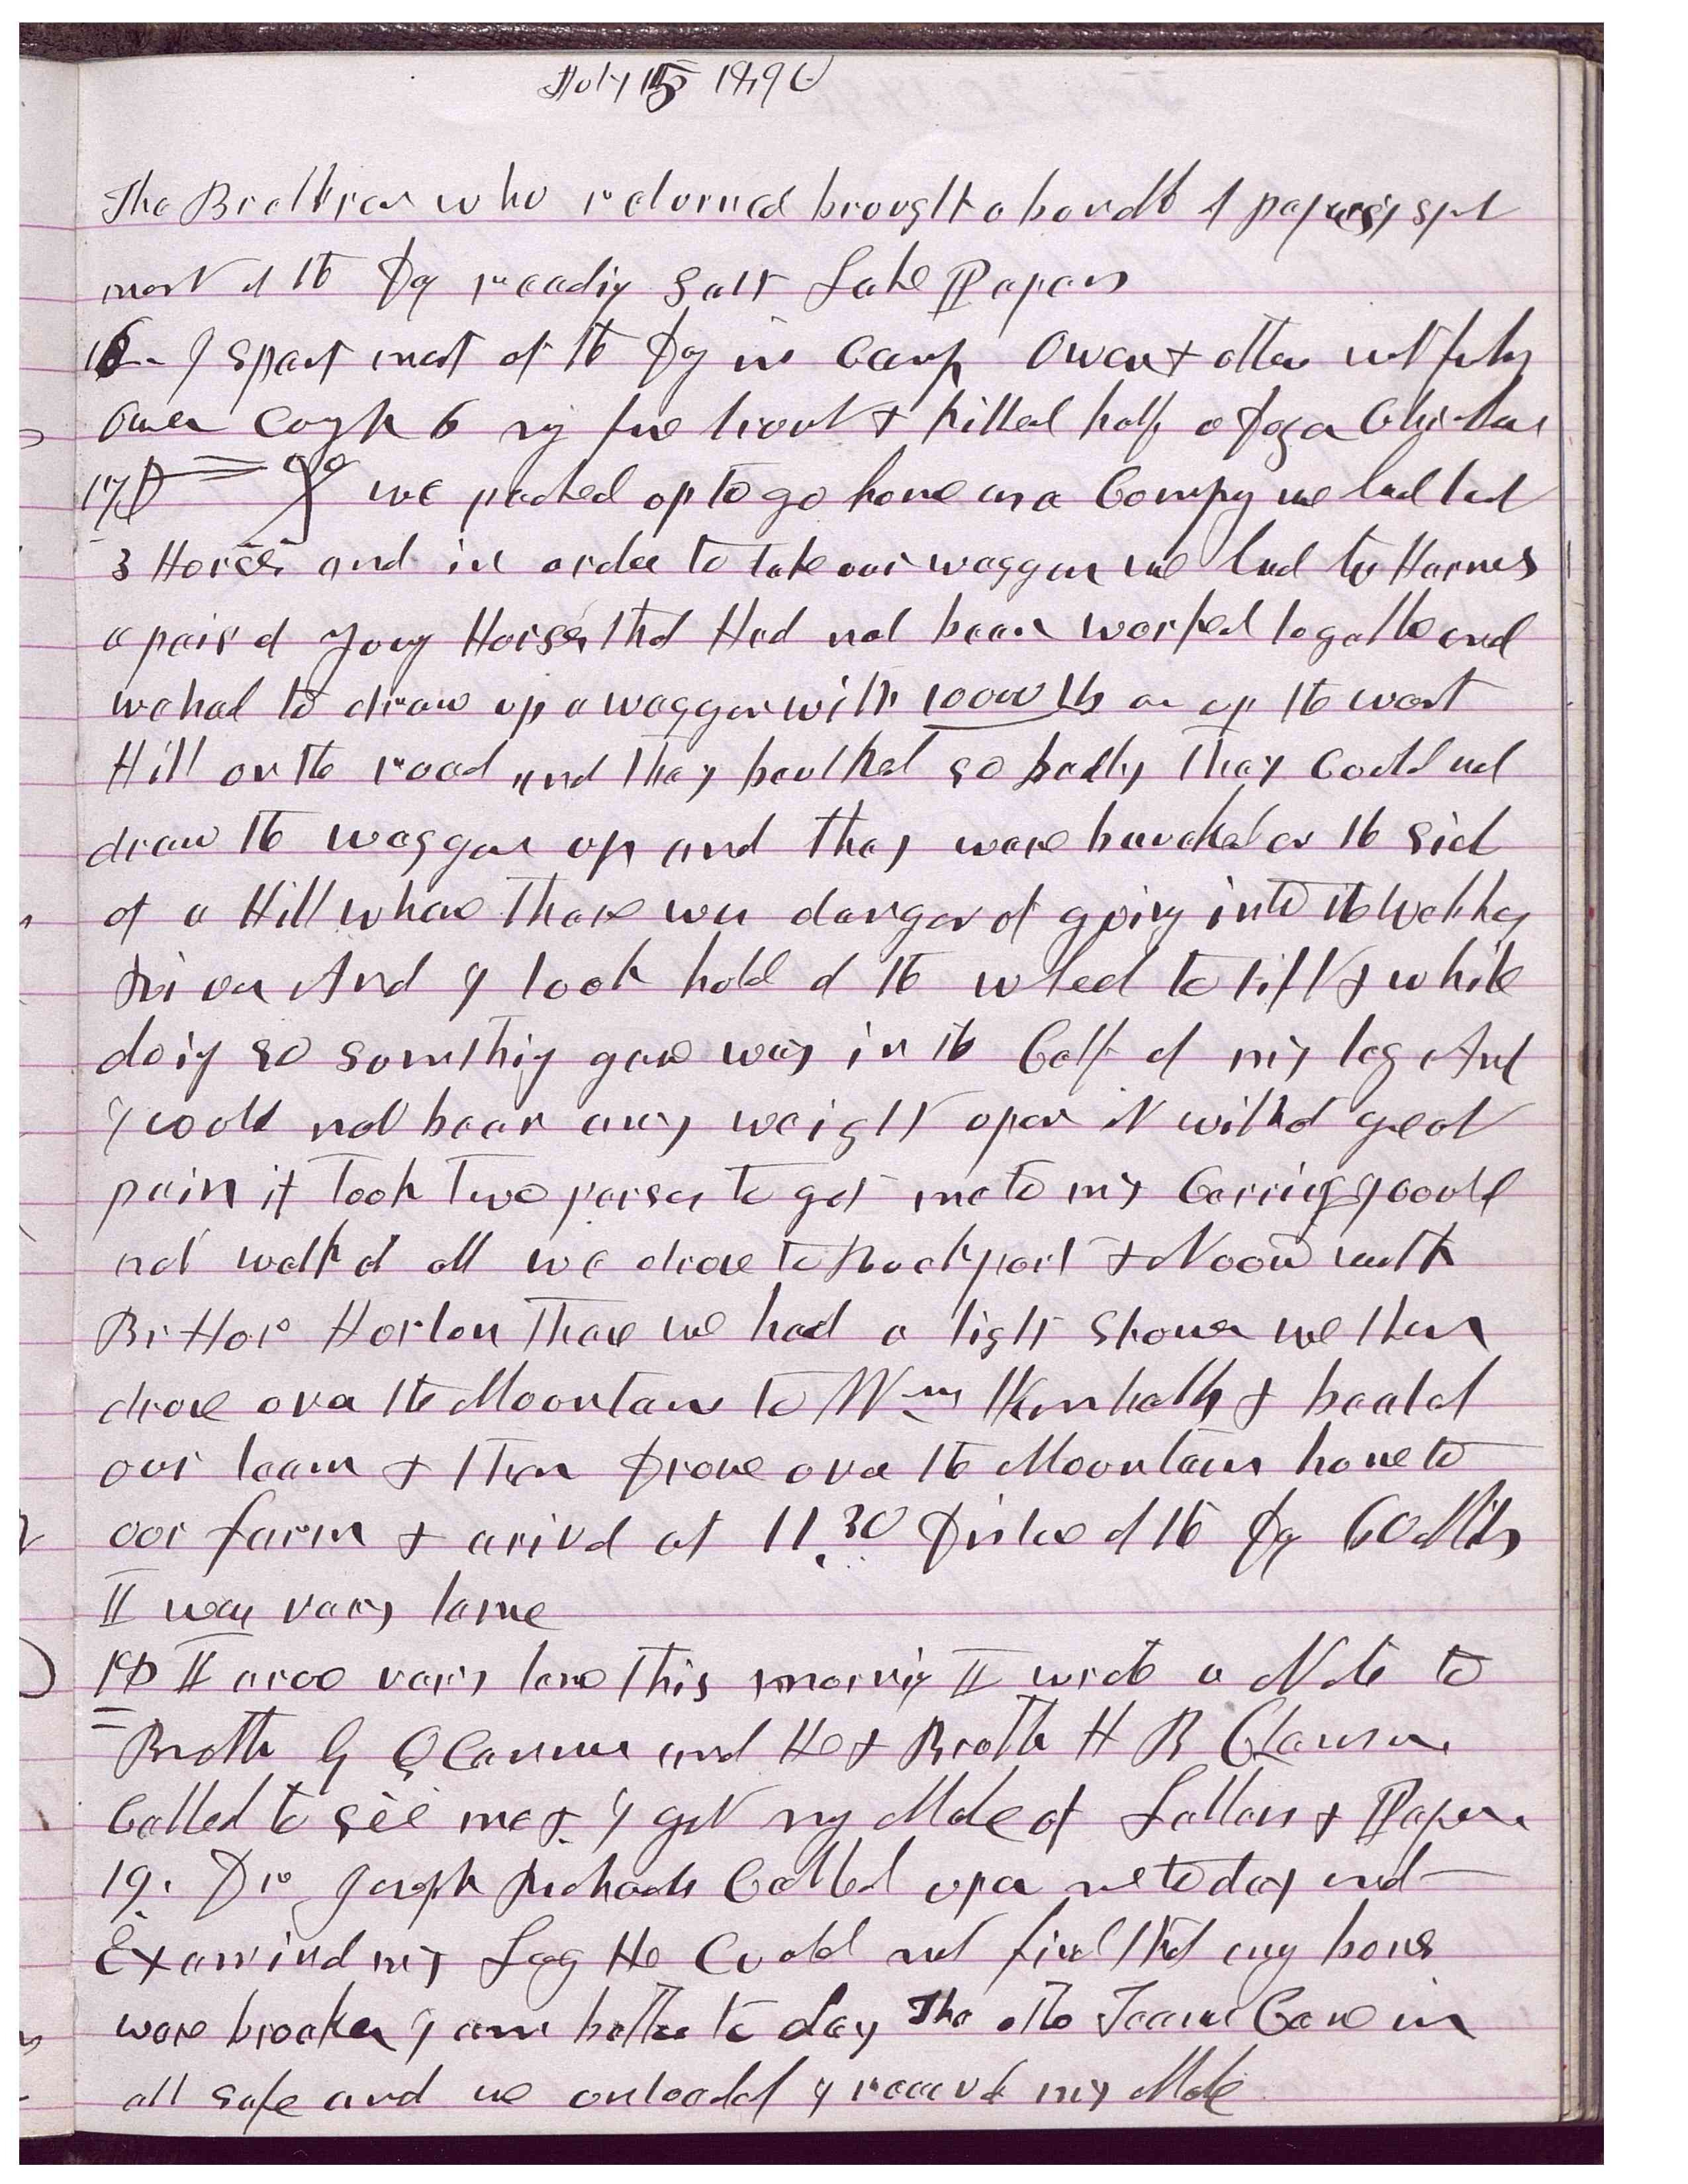 July 15 1896
The Brethren who returned brought a bundle of papers I spent
most of the day reading Salt Lake Papers
16 - I spent most of the day in Camp Owen & others went fishing
Owen caught 6 my fine trout & killed half a dozen Chickens
17 we packed up to go home as a Company we had lost
3 Horses and in order to take our waggon we had to Harnes
a pair of young Horses that Had not been worked together and
we had to draw up a waggon with 1000 lb on up the worst
Hill on the road and they baulked so badly they Could not
draw the waggon up and they were on the side
of a Hill whare thare was danger of going into the
River And I took hold of the wheel to lift & while
doing so somthing gave way in the Calf of my leg And
I could not bear any weight upon it without great
pain it took two persons to get me to my Carriage I could
not walk at all we drove to Rockport & Noond with
Br Hor thare we had a light shower we then
drove over the Mountain to Wm Kimballs & baited
our team & then drove over the Mountain home to
our farm & arived at 11.30 Distance of the day 60 Miles
I was vary lame
18 I arose vary lame this morning I wrote a Note to
Brother G Q Cannon and He & Brother H B Clawson
Called to see me & I got my Male of Letters & Papers
19. Dr Joseph Richards Called upon me to day and
Examined my Leg He Could not find that any bones
ware broaken I am better to day The other Teams Came in
all safe and we onloaded I receved my Male